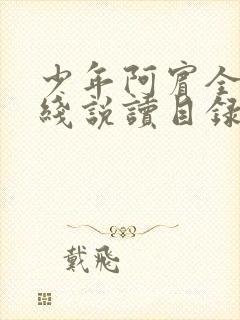 少年阿賓全
綫説讀目録
戴飛